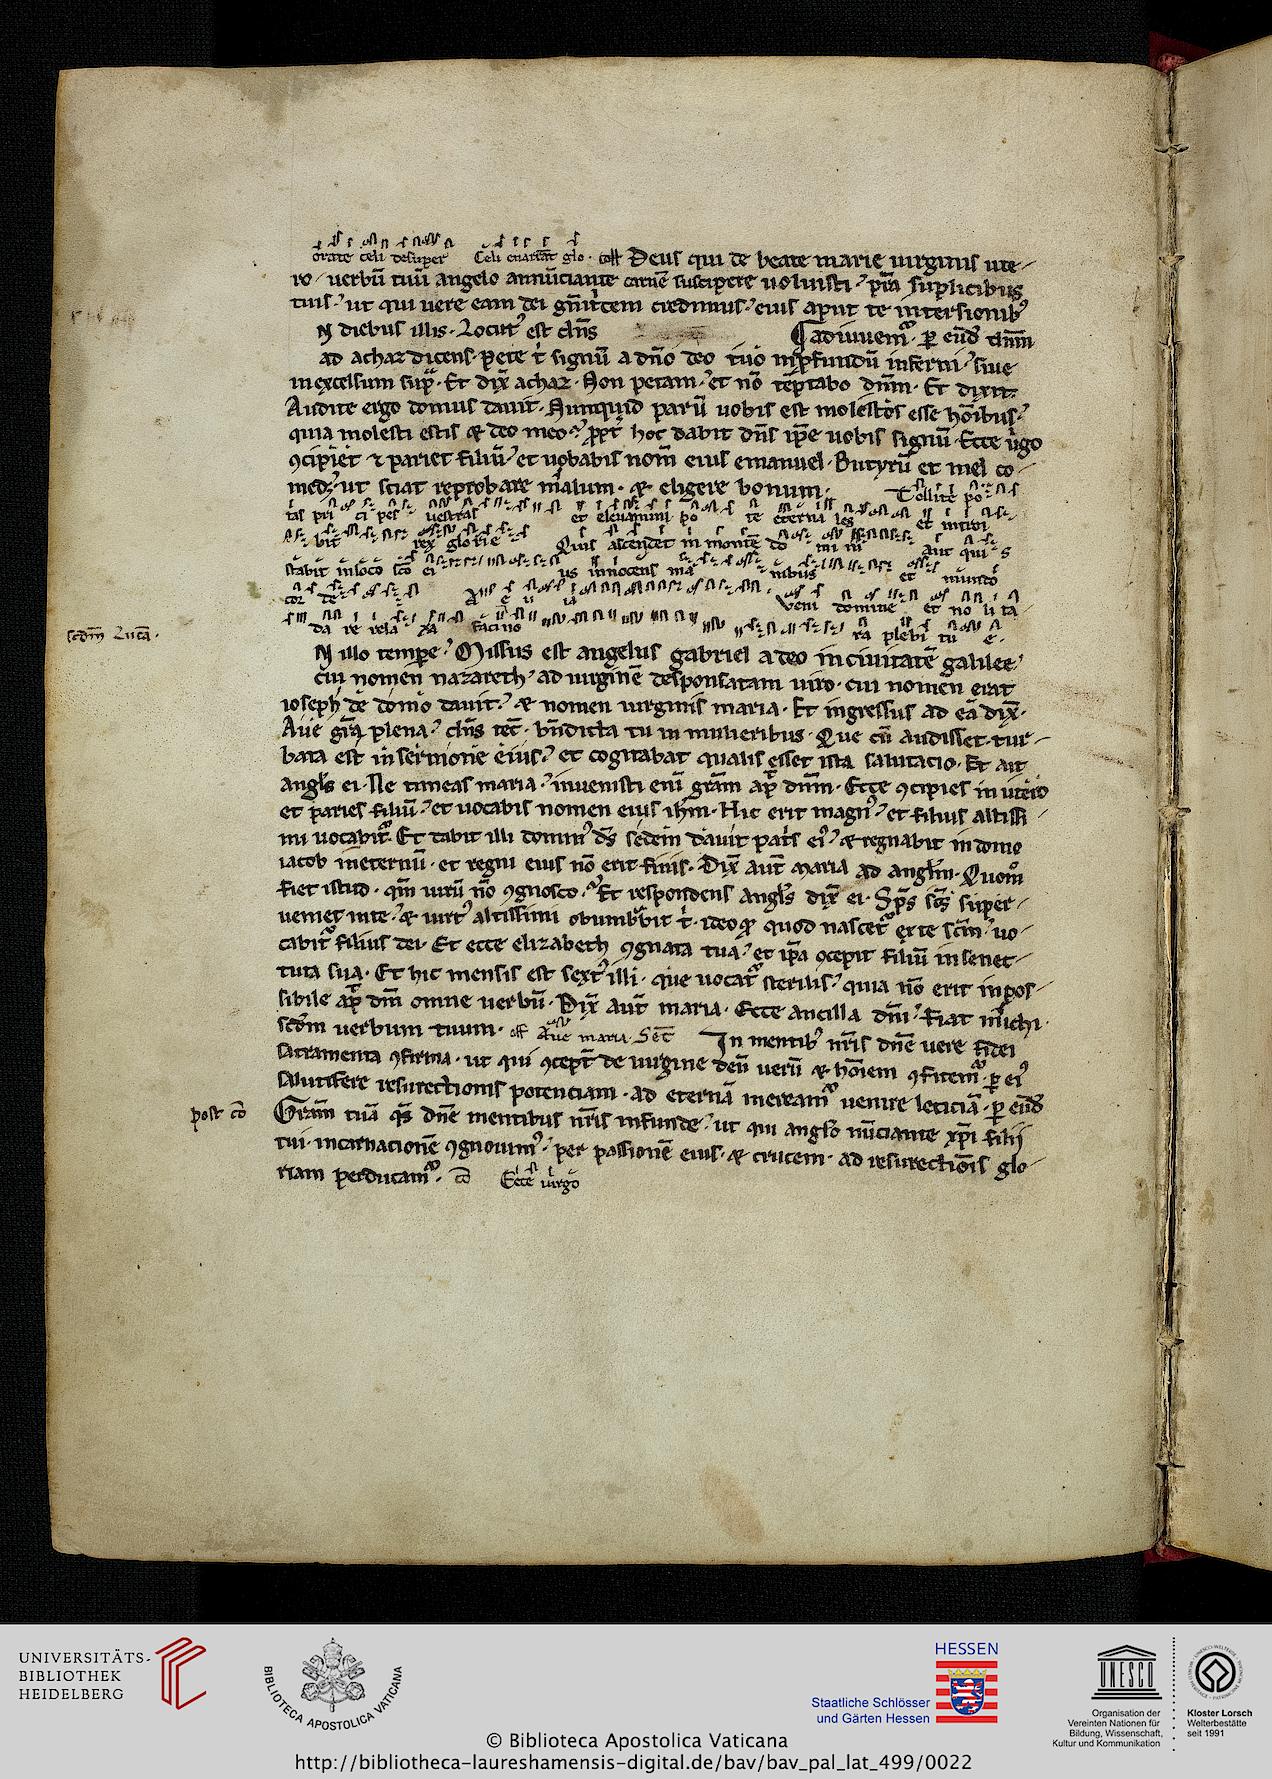 orate celi desuper Celi enarrāt glo. coll Deus qui de beate marie uirginis ute-
ro. uerbū tuū angelo annūciante carnē suscipere uoluisti. p̄sta suplicibus
tuis. ut qui uere eam dei gn̄itcem credimus. eius aput te intersionibꝰ
N diebus illis. Locutꝰ est dn̄s adiuuemꝰ. ꝑ eūd dn̄m
ad achaz dicens. pete t̄ signū a dn̄o deo tuo in ꝓfundū inferni. siue
in excelsum sup̄. Et dix̄ achaz. Non petam. et nō tēptabo dn̄m. Et dixit.
Audite ergo domus dauit. Nunquid parū uobis est molestos esse hōibus.
quia molesti estis & deo meo. ꝓpt̄ hoc dabit dn̄s ip̄e uobis signū. Ecce ůgo
ꝯcipiet ⁊ pariet filiū. et uocabis nom̄ eius emanuel. Butyrū et mel co-
med&. ut sciat reprobare malum. & eligere bonum. Tollite po
tas pri ci pes uestras et eleuamini po te eterna les et introi
bit rex glorie Quis ascendet in montē do mi ni aut qui s
stabit in loco sc̄o ei us innocens ma nibus et mundo
cor de A e u ia Veni domine et no li ta
da re rela xa facino ra plebi tu e.
sedm̄ Lucā.
N illo tempe. Missus est angelus gabriel a deo in ciuitatē galilee.
cui nomen nazareth. ad uirginē desponsatam uiro. cui nomen erat
ioseph de domo dauit. & nomen uirginis maria. Et ingressus ad eā dix̄.
Aue gr̄a plena. dn̄s tec̄. bn̄dicta tu in mulieribus. Que cū audisset. tur-
bata est in sermone eius. et cogitabat qualis esset ista salutacio. Et ait
angls̄ ei. Ne timeas maria. inuenisti enī grām ap̄ dn̄m. Ecce ꝯcipies in utero
et paries filiū. et uocabis nomen eius ihm̄. Hic erit magnꝰ. et filius altissi-
mi uocabit̄. Et dabit illi dominꝰ ds̄ sedem dauit patis eiꝰ. & regnabit in domo
iacob in eternū. et regni eius nō erit finis. Dix̄ aut̄ maria ad anglm̄. Quom̊
fiet istud. qm̄ uirū nō ꝯgnosco. Et respondens angls̄ dix̄ ei. Sp̄s sc̄s super-
ueniet in te. & uirtꝰ altissimi obumbrbit t̄. ideoqꝫ quod nascet̄ ex te scm̄. uo-
cabit̄ filius dei. Et ecce elizabeth ꝯgnata tua. et ip̄a ꝯcepit filiū in senec-
tuta sua. Et hic mensis est sextꝰ illi. que uocat̄ sterilis. quia nō erit inpos-
sibile ap̄ dm̄ omne uerbū. Dix̄ aut̄ maria. Ecce ancilla dn̄i. fiat michi
scdm̄ uerbum tuum. off Aue maria. Sec̄ In mentibꝰ nr̄is dn̄e uere fidei
sacramenta ꝯfirma. ut qui ꝯcept̄ de uirgine deū uerū & hōiem ꝯfitem̄. ꝑ eiꝰ
salutifere resurectionis potenciam. ad eternā mereamꝰ uenire leticiā. ꝑ eūd
post cō Gram̄ tuā qs̄ dn̄e mentibus nr̄is infunde. ut qui anglo nūciante xp̄i filij
tui. incarnacionē ꝯgnouimꝰ. per passionē eius. & crucem. ad resurectiōis glo-
riam perducamꝰ. cō Ecce uirgo
UNIVERSITÄTS-
BIBLIOTHEK
HEIDELBERG
BIBLIOTECA APOSTOLICA VATICANA
HESSEN
Staatliche Schlösser
und Gärten Hessen
UNESCO
Organisation der
Vereinten Nationen für
Bildung, Wissenschaft,
Kultur und Kommunikation
Kloster Lorsch
Welterbestätte
seit 1991
© Biblioteca Apostolica Vaticana
http://bibliotheca-laureshamensis-digital.de/bav/bav_pal_lat_499/0022